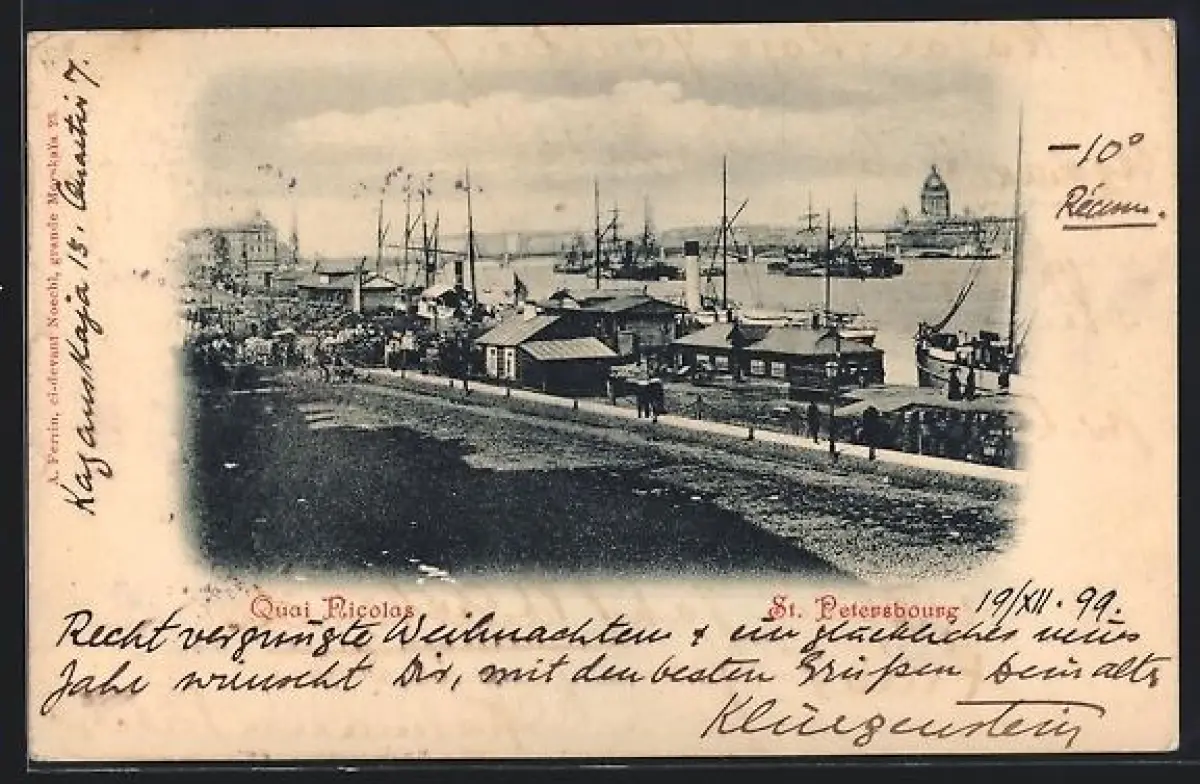 A. Perrin, ci-devant Noechi, grande Morskaïa 23.
Kazanskaja 13. 7.
-10°
Quai Nicolas
St. Petersbourg
19/XII. 99.
Recht vergnügte Weihnachten & ein glückliches neues
Jahr wünscht Dir, mit den besten Grüßen Dein alter
Kluegenstein